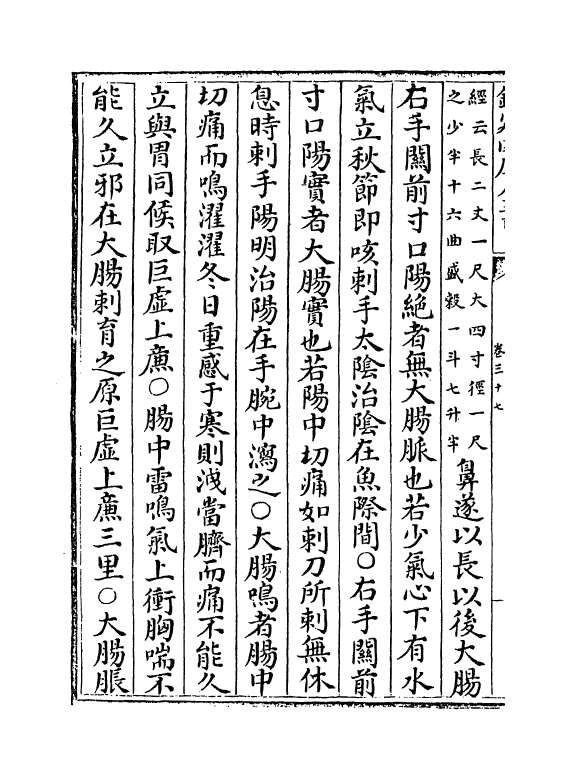 經云長二丈一尺大四寸徑一尺
之少半十六曲盛穀一斗七升半
鼻遂以長以後大腸
右手關前寸口陽絶者無大腸脈也若少氣心下有水
氣立秋節即咳刺手太陰治陰在魚際間○右手關前
寸口陽實者大腸實也若陽中切痛如刺刀所刺無休
息時刺手陽明治陽在手腕中瀉之○大腸鳴者腸中
切痛而鳴濯濯冬日重感于寒則洩當臍而痛不能久
立與胃同候取巨虛上廉○腸中雷鳴氣上衝胸喘不
能久立邪在大腸刺育之原巨虛上廉三里○大腸脹
卷三十七